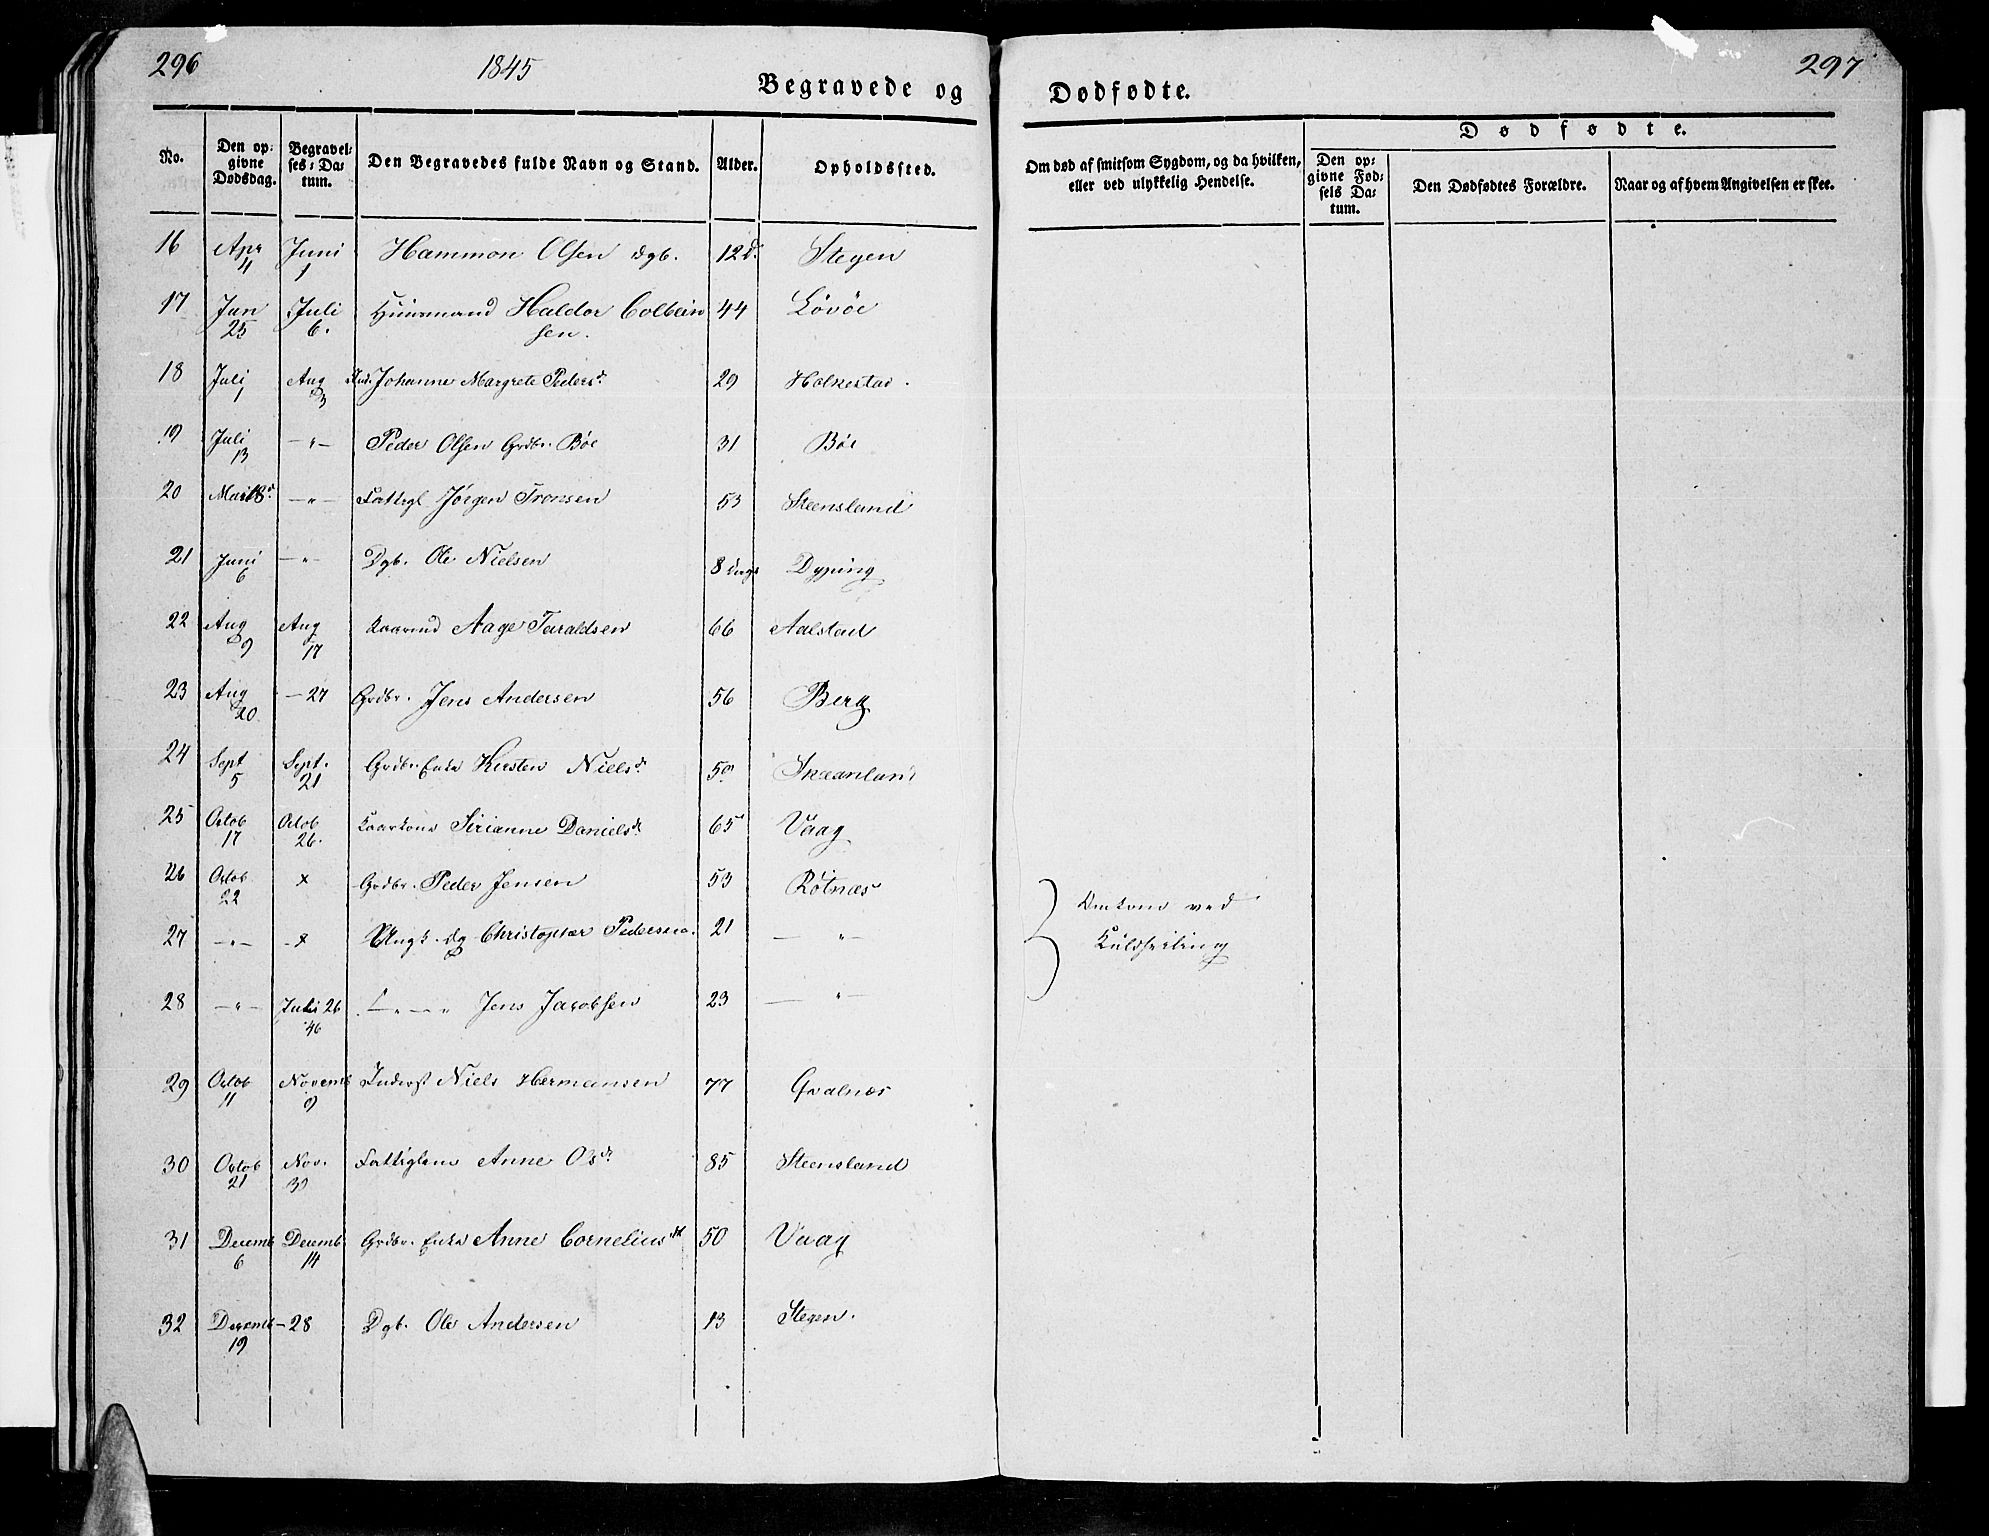 296
1845
Begravede og
Dødfødte.
297
No.
Den op-
givne
Dødsdag.
Begravel-
ses-Da-
tum.
Den Begravedes fulde Navn og Stand.
Alder.
Opholdssted.
Om død af smitsom Sygdom, og da hvilken,
eller ved ulykkelig Hendelse.
Dødfødte.
Den op-
givne Fød-
sels Da-
tum.
Den Dødfødtes Forældre.
Naar og af hvem Angivelsen er skee.
16 Apr 4 Juni 1 Hammon Olsen dgb. 12 d. Stegen
17 Jun 25 Juli 6. Huusmand Haldor Colbein 44 Løvøe
sen.
18 Juli 1 Aug 3 Johanne Margrete Pedersd. 29 Holkestad.
19 Juli 13 —"— Peder Olsen Grdbr. Bøe 31 Bøe
20 —"— Fattigl Jørgen Tronsen 53 Steensland
21 Juni 6 —"— Dgb. Ole Nielsen 8 Dyping
22 Aug 9 Aug 17 Kaarmd Aage Taraldsen 66 Aalstad
23 Aug 20 — 27 Grdbr. Jens Andersen 56 Berg
24 Sept 5 Sept. 21 Grdbr. Enke Kirsten Nielsd. Skaanland
25 Octob 17 Octob 26. Kaarkone Sirianne Danielsd. 65 Vaag
26 Octob 22 x Grdbr. Peder Jensen 53 Røtnæs
27 —"— x Ungk. Christopher Pedersen. 21 — " —
Omkom ved
Kuldseiling
28 —"— Juli 26 46 — " — " Jens Jacobsen 23 — " —
29 Octob 11 Novemb 9 Inderst Niels Hermansen 77 Qvalnæs
30 Octob 21 Nov. 30 Fattiglem Anne Osd. 85 Steensland
31 Decemb 6 Decemb 14 Grdbr. Enke Anne Corneliusdt 50 Vaag
32 Decemb 19 — 28 Dgb. Ole Andersen 13 Stegen.